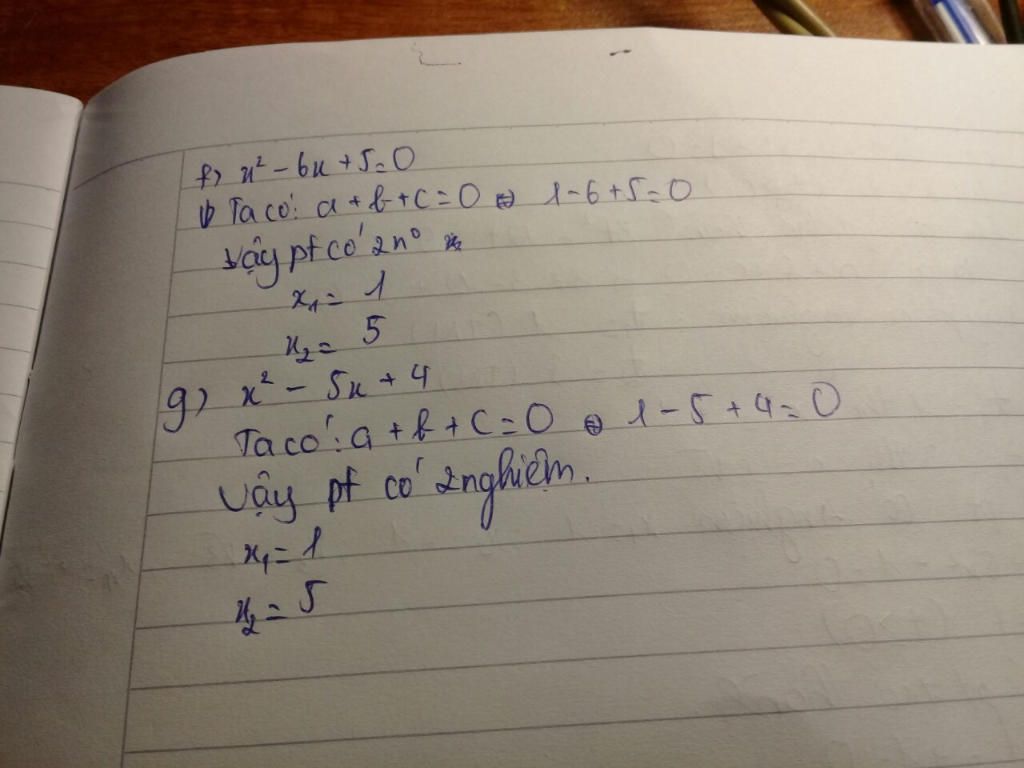 f) x² - 6x + 5 = 0
Ta có: a + b + c = 0 ⇔ 1 - 6 + 5 = 0
Vậy pt có 2 n⁰
x₁ = 1
x₂ = 5
g) x² - 5x + 4
Ta có: a + b + c = 0 ⇔ 1 - 5 + 4 = 0
Vậy pt có 2 nghiệm.
x₁ = 1
x₂ = 5